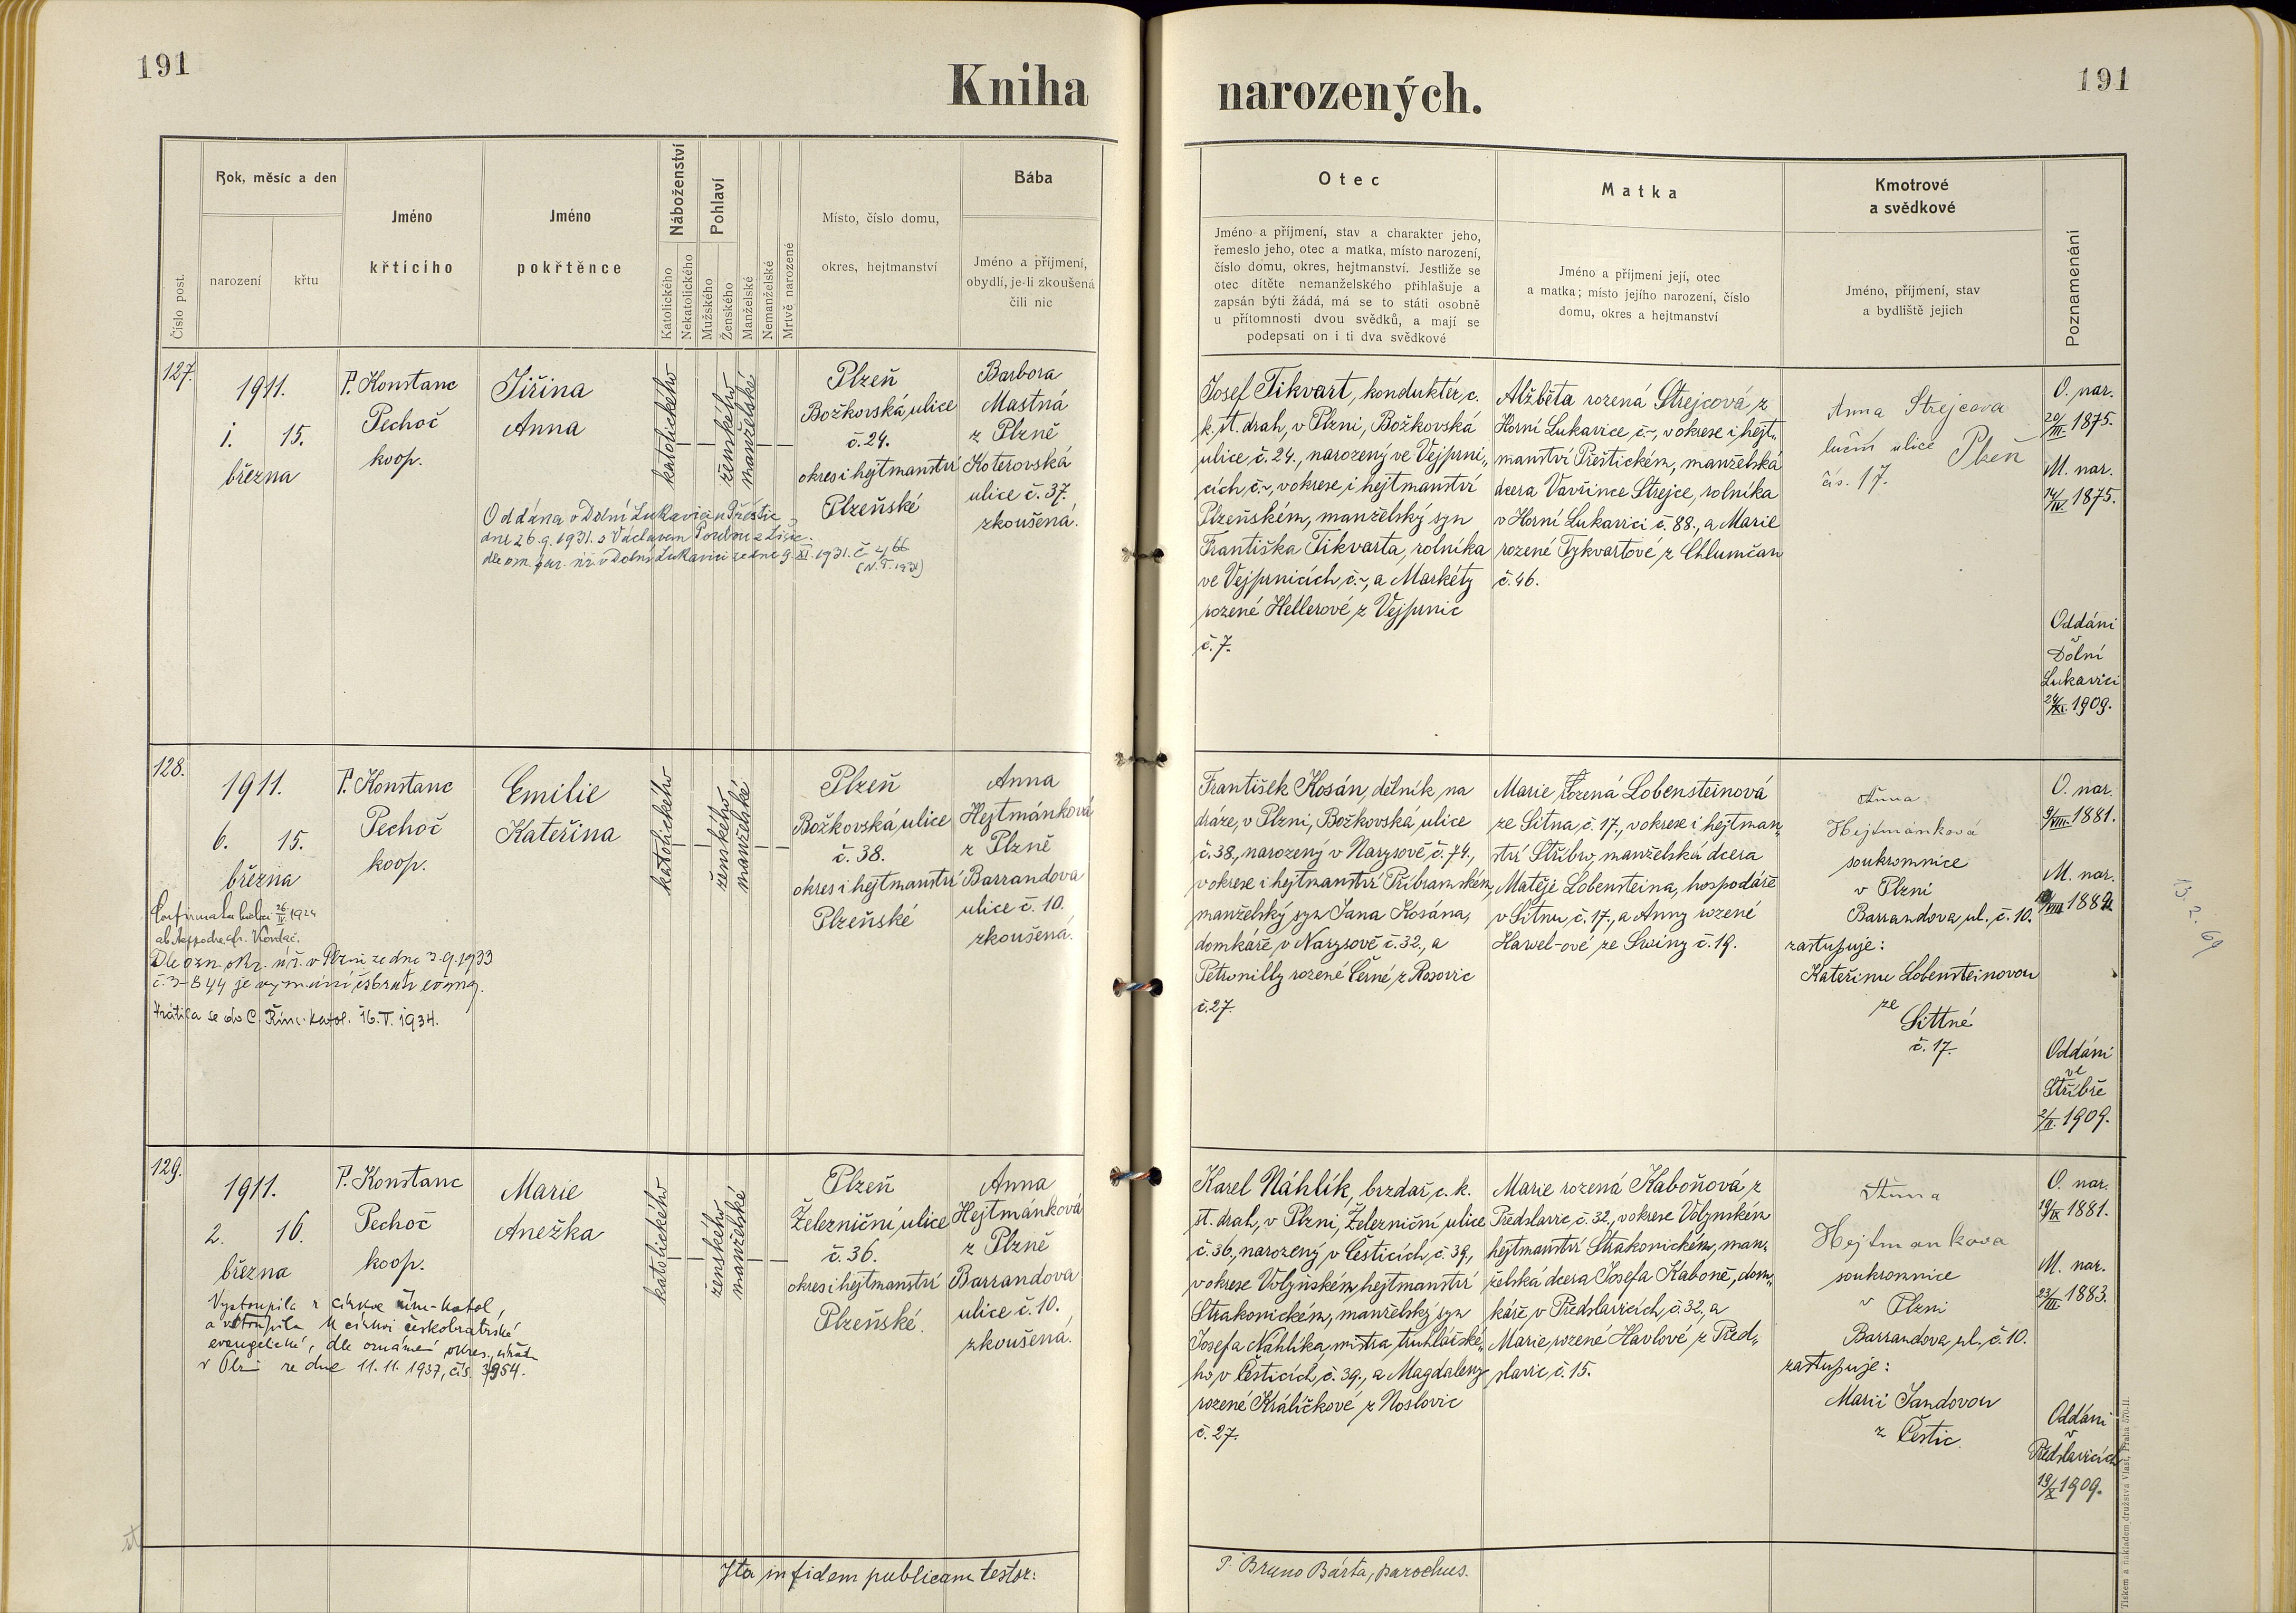 191
Kniha
narozených.
191
Číslo post.
Rok, měsíc a den
narození
křtu
Jméno
křticího
Jméno
pokřtěnce
Náboženství
Katolického
Nekatolického
Pohlaví
Mužského
Ženského
Manželské
Nemanželské
Mrtvě narozené
Místo, číslo domu,
okres, hejtmanství
Bába
Jméno a příjmení,
obydlí, je-li zkoušená
čili nic
Otec
Jméno a příjmení, stav a charakter jeho,
řemeslo jeho, otec a matka, místo narození,
číslo domu, okres, hejtmanství. Jestliže se
otec dítěte nemanželského přihlašuje a
zapsán býti žádá, má se to státi osobně
u přítomnosti dvou svědků, a mají se
podepsati on i ti dva svědkové
Matka
Jméno a příjmení její, otec
a matka; místo jejího narození, číslo
domu, okres a hejtmanství
Kmotrové
a svědkové
Jméno, příjmení, stav
a bydliště jejich
Poznamenání
127.
1911.
1. 15.
března
P. Konstanc
Pechoč
koop.
Jiřina
Anna
Oddána v Dolní Lukavici u Přeštic
dne 26.9.1931. s Václavem Poubou z Líšic.
dle om. far. úř. v Dolní Lukavici ze dne 9. XI. 1931. č 466
katolického
ženského
manželské
Plzeň
Božkovská ulice
č. 24.
okres i hejtmanství
Plzeňské
Barbora
Mastná
z Plzně
Koterovská
ulice č. 37.
zkoušená.
Josef Tikvart, konduktér c.
k. st. drah, v Plzni, Božkovská
ulice, č. 24., narozený ve Vejprni„
cích, č. ~, v okrese i hejtmanství
Plzeňském, manželský syn
Františka Tikvarta, rolníka
ve Vejprnicích č. ~, a Markéty
rozené Hellerové z Vejprnic
č. 7.
Alžběta rozená Strejcová, z
Horní Lukavice č. ~, v okrese i hejt„
manství Přeštickém, manželská
dcera Vavřince Strejce, rolníka
v Horní Lukavici č. 88., a Marie
rozené Tykvartové z Chlumčan
č. 46.
Anna Strejcova
luční ulice Plzeň
čís. 17.
O. nar.
20/III. 1875.
M. nar.
14/IV. 1875.
Oddáni
v
Dolní
Lukavici
24/XI. 1909.
128.
1911.
6. 15.
března
P. Konstanc
Pechoč
koop.
Emilie
Kateřina
1924
Dle ozn. okr. úř. v Plzni ze dne 3.9.1933
vrátila se do C. Řím. katol. 16. V. 1934.
katolického
ženského
manželské
Plzeň
Božkovská ulice
č. 38.
okres i hejtmanství
Plzeňské
Anna
Hejtmánková
z Plzně
Barrandova
ulice č. 10.
zkoušená.
František Kosán, dělník na
dráze, v Plzni, Božkovská ulice
č. 38., narozený v Narysově, č. 74.,
v okrese i hejtmanství Příbramském,
manželský syn Jana Kosána,
domkáře, v Narysově č. 32., a
Petronilly rozené Černé, z Rosovic
č. 27.
Marie rozená Lobensteinová
ze Sitna, č. 17., v okrese i hejtman„
ství Stříbro, manželská dcera
Matěje Lobensteina, hospodáře
v Sitnu, č. 17., a Anny rozené
Hawel-ové ze Swiny č. 19.
Anna
Hejtmánková
soukromnice
v Plzni
Barrandova, ul., č. 10.
zastupuje:
Kateřinu Lobensteinovou
ze
Sittné
č. 17.
O. nar.
9/VIII. 1881.
M. nar.
Oddáni
ve
Stříbře
2/II. 1909.
13. 2. 69
129.
1911.
2. 16.
března
P. Konstanc
Pechoč
koop.
Marie
Anežka
Vystoupila z církve řím-katol,
a vstoupila k církvi českobratrské
evangelické, dle oznámení okres. úřadu
v Plzni ze dne 11. 11. 1937, čís. 3954.
katolického
ženského
manželské
Plzeň
Železniční ulice
č. 36.
okres i hejtmanství
Plzeňské.
Anna
Hejtmánková
z Plzně
Barrandova
ulice č. 10.
zkoušená.
Karel Náhlík, brzdař, c. k.
st. drah, v Plzni, Železniční ulice
č. 36, narozený v Česticích, č. 39.,
v okrese Volyňském, hejtmanství
Strakonickém, manželský syn
Josefa Náhlíka, mistra truhlářské„
ho v Česticích, č. 39., a Magdaleny
rozené Králíčkové z Nošlovic
č. 27.
Marie rozená Kaboňová z
Předslavic, č. 32., v okrese Volyňském
hejtmanství Strakonickém, man„
želská dcera Josefa Kaboně, dom„
káře, v Předslavicích, č. 32., a
Marie, rozené Havlové z Před„
slavic, č. 15.
Anna
Hejtmankova
soukromnice
v Plzni
Barrandova, ul., č. 10.
zastupuje:
Marii Jandovou
z Čestic.
O. nar.
19/IX. 1881.
M. nar.
23/III. 1883.
Oddáni
v
Předslavicích
19/X. 1909.
Ita in fidem publicam testor:
P. Bruno Bárta, parochus.
Tiskem a nákladem družstva Vlast, Praha 570-II.